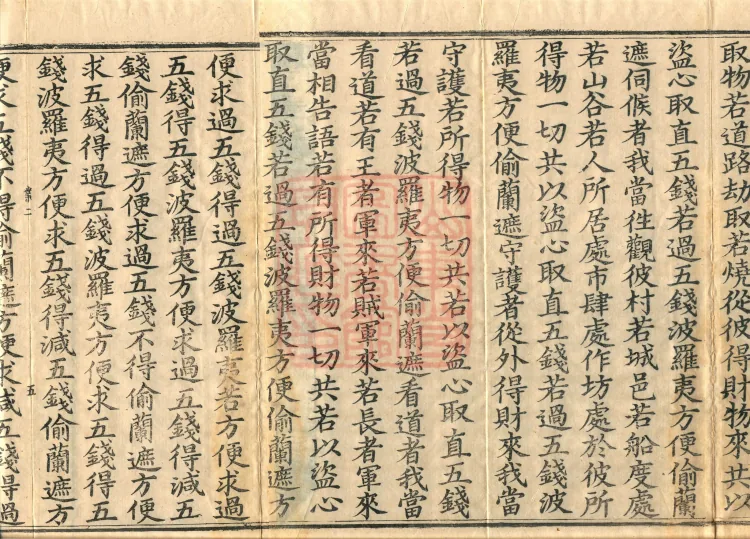 取物若道路劫取若燒從彼得財物來共以
盜心取直五錢若過五錢波羅夷方便偷蘭
遮伺候者我當往觀彼村若城邑若船度處
若山谷若人所居處市肆處作坊處於彼所
得物一切共以盜心取直五錢若過五錢波
羅夷方便偷蘭遮守護者從外得財來我當
守護若所得物一切共若以盜心取直五錢
若過五錢波羅夷方便偷蘭遮看道者我當
看道若有王者軍來若賊軍來若長者軍來
當相告語若有所得財物一切共若以盜心
取直五錢若過五錢波羅夷方便偷蘭遮方
便求過五錢得過五錢波羅夷若方便求過
五錢得五錢波羅夷方便求過五錢得減五
錢偷蘭遮方便求過五錢不得偷蘭遮方便
求五錢得過五錢波羅夷方便求五錢得五
錢波羅夷方便求五錢得減五錢偷蘭遮方
五
便求五錢不得偷蘭遮方便求減五錢得過